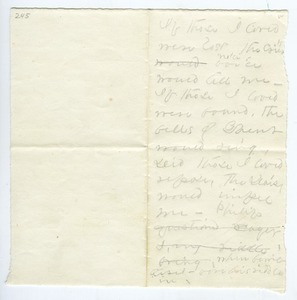 245
If those I loved
were lost, the Crier's
would voice
would tell me -
If those I loved
were found, the
bells of Ghent
would ring -
did those I loved
repose, the Daisy
would impel
me - Philip
questioned eager
I, my riddle
bring
when